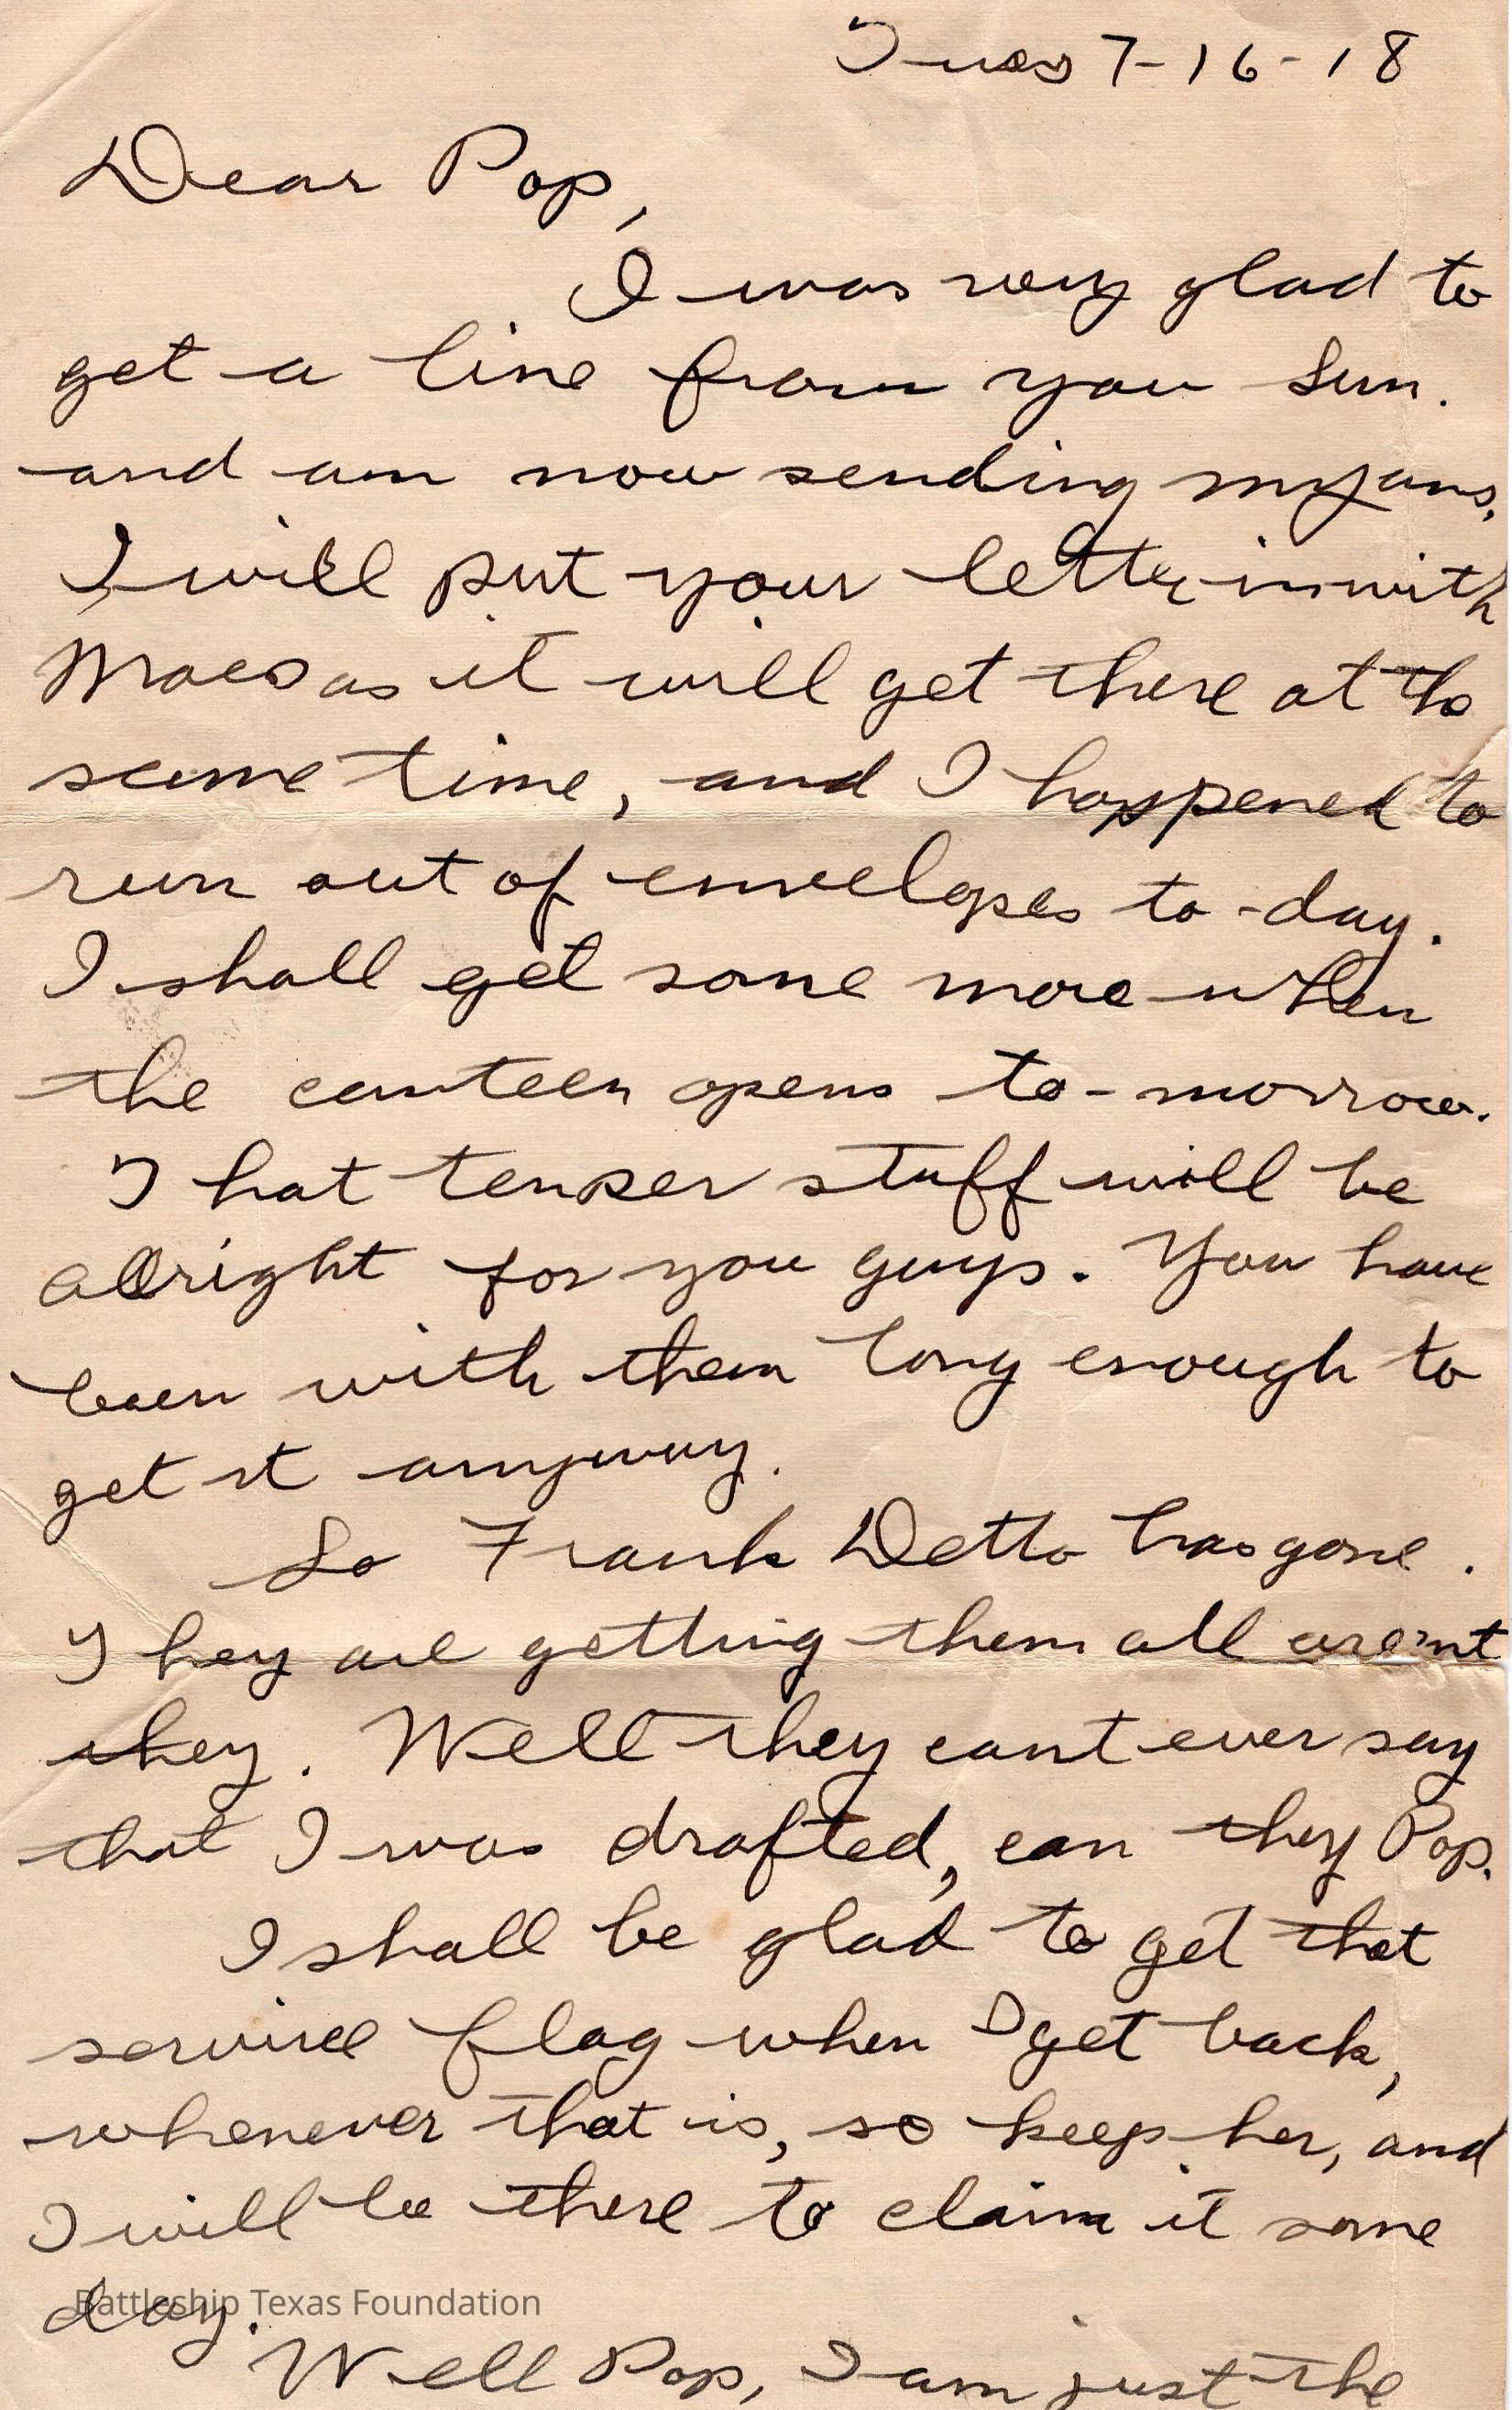 Tues 7-16-18
Dear Pop,
I was very glad to
get a line from you Sun.
and am now sending my ans.
I will put your letter in with
Maes as it will get there at the
same time, and I happened to
run out of envelopes to-day.
I shall get some more when
the canteen opens to-morrow.
That tenper stuff will be
allright for you guys. You have
been with them long enough to
get it anyway.
So Frank Detto has gone.
They are getting them all are'nt
they. Well they cant ever say
that I was drafted, can they Pop.
I shall be glad to get that
service flag when I get back,
whenever that is, so keep her, and
I will be there to claim it some
day.
Battleship Texas Foundation
Well Pop, I am just the